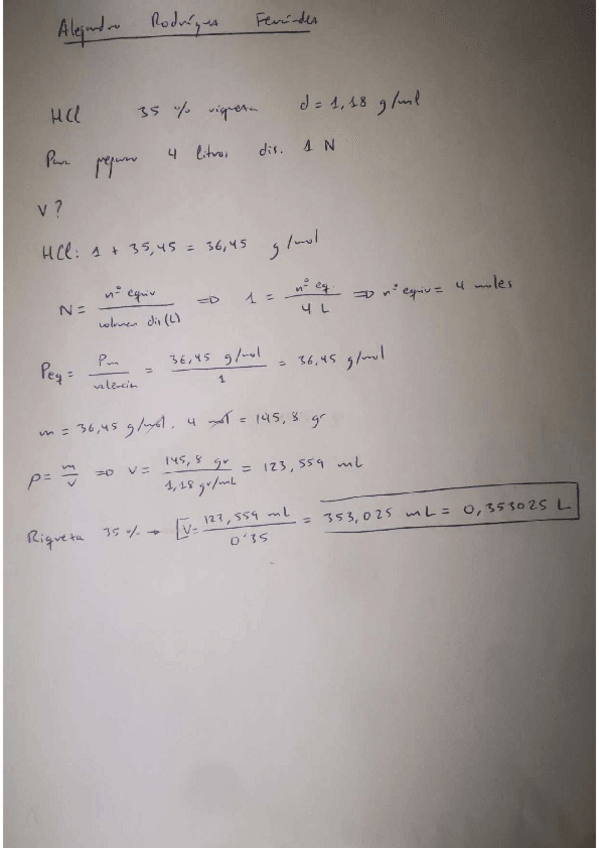 Alejandro Rodríguez Fernández
HCl 35 % riqueza d = 1,18 g/ml
Para preparar 4 litros dis. 1 N
V?
HCl: 1 + 35,45 = 36,45 g/mol
N = nº equiv / volumen dis(L) => 1 = nº eq. / 4 L => nº equiv = 4 moles
Peq = Pm / valencia = 36,45 g/mol / 1 = 36,45 g/mol
m = 36,45 g/mol . 4 mol = 145,8 gr
ρ = m / V => V = 145,8 gr / 1,18 gr/mL = 123,559 mL
Riqueza 35 % → V = 123,559 mL / 0'35 = 353,025 mL = 0,353025 L